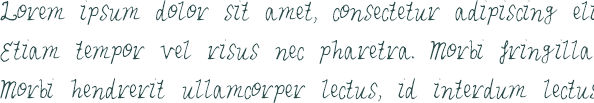 Lorem ipsum dolor sit amet, consectetur adipiscing eli
Etiam tempor vel risus nec pharetra. Morbi fringilla
Morbi hendrerit ullamcorper lectus, id interdum lectus